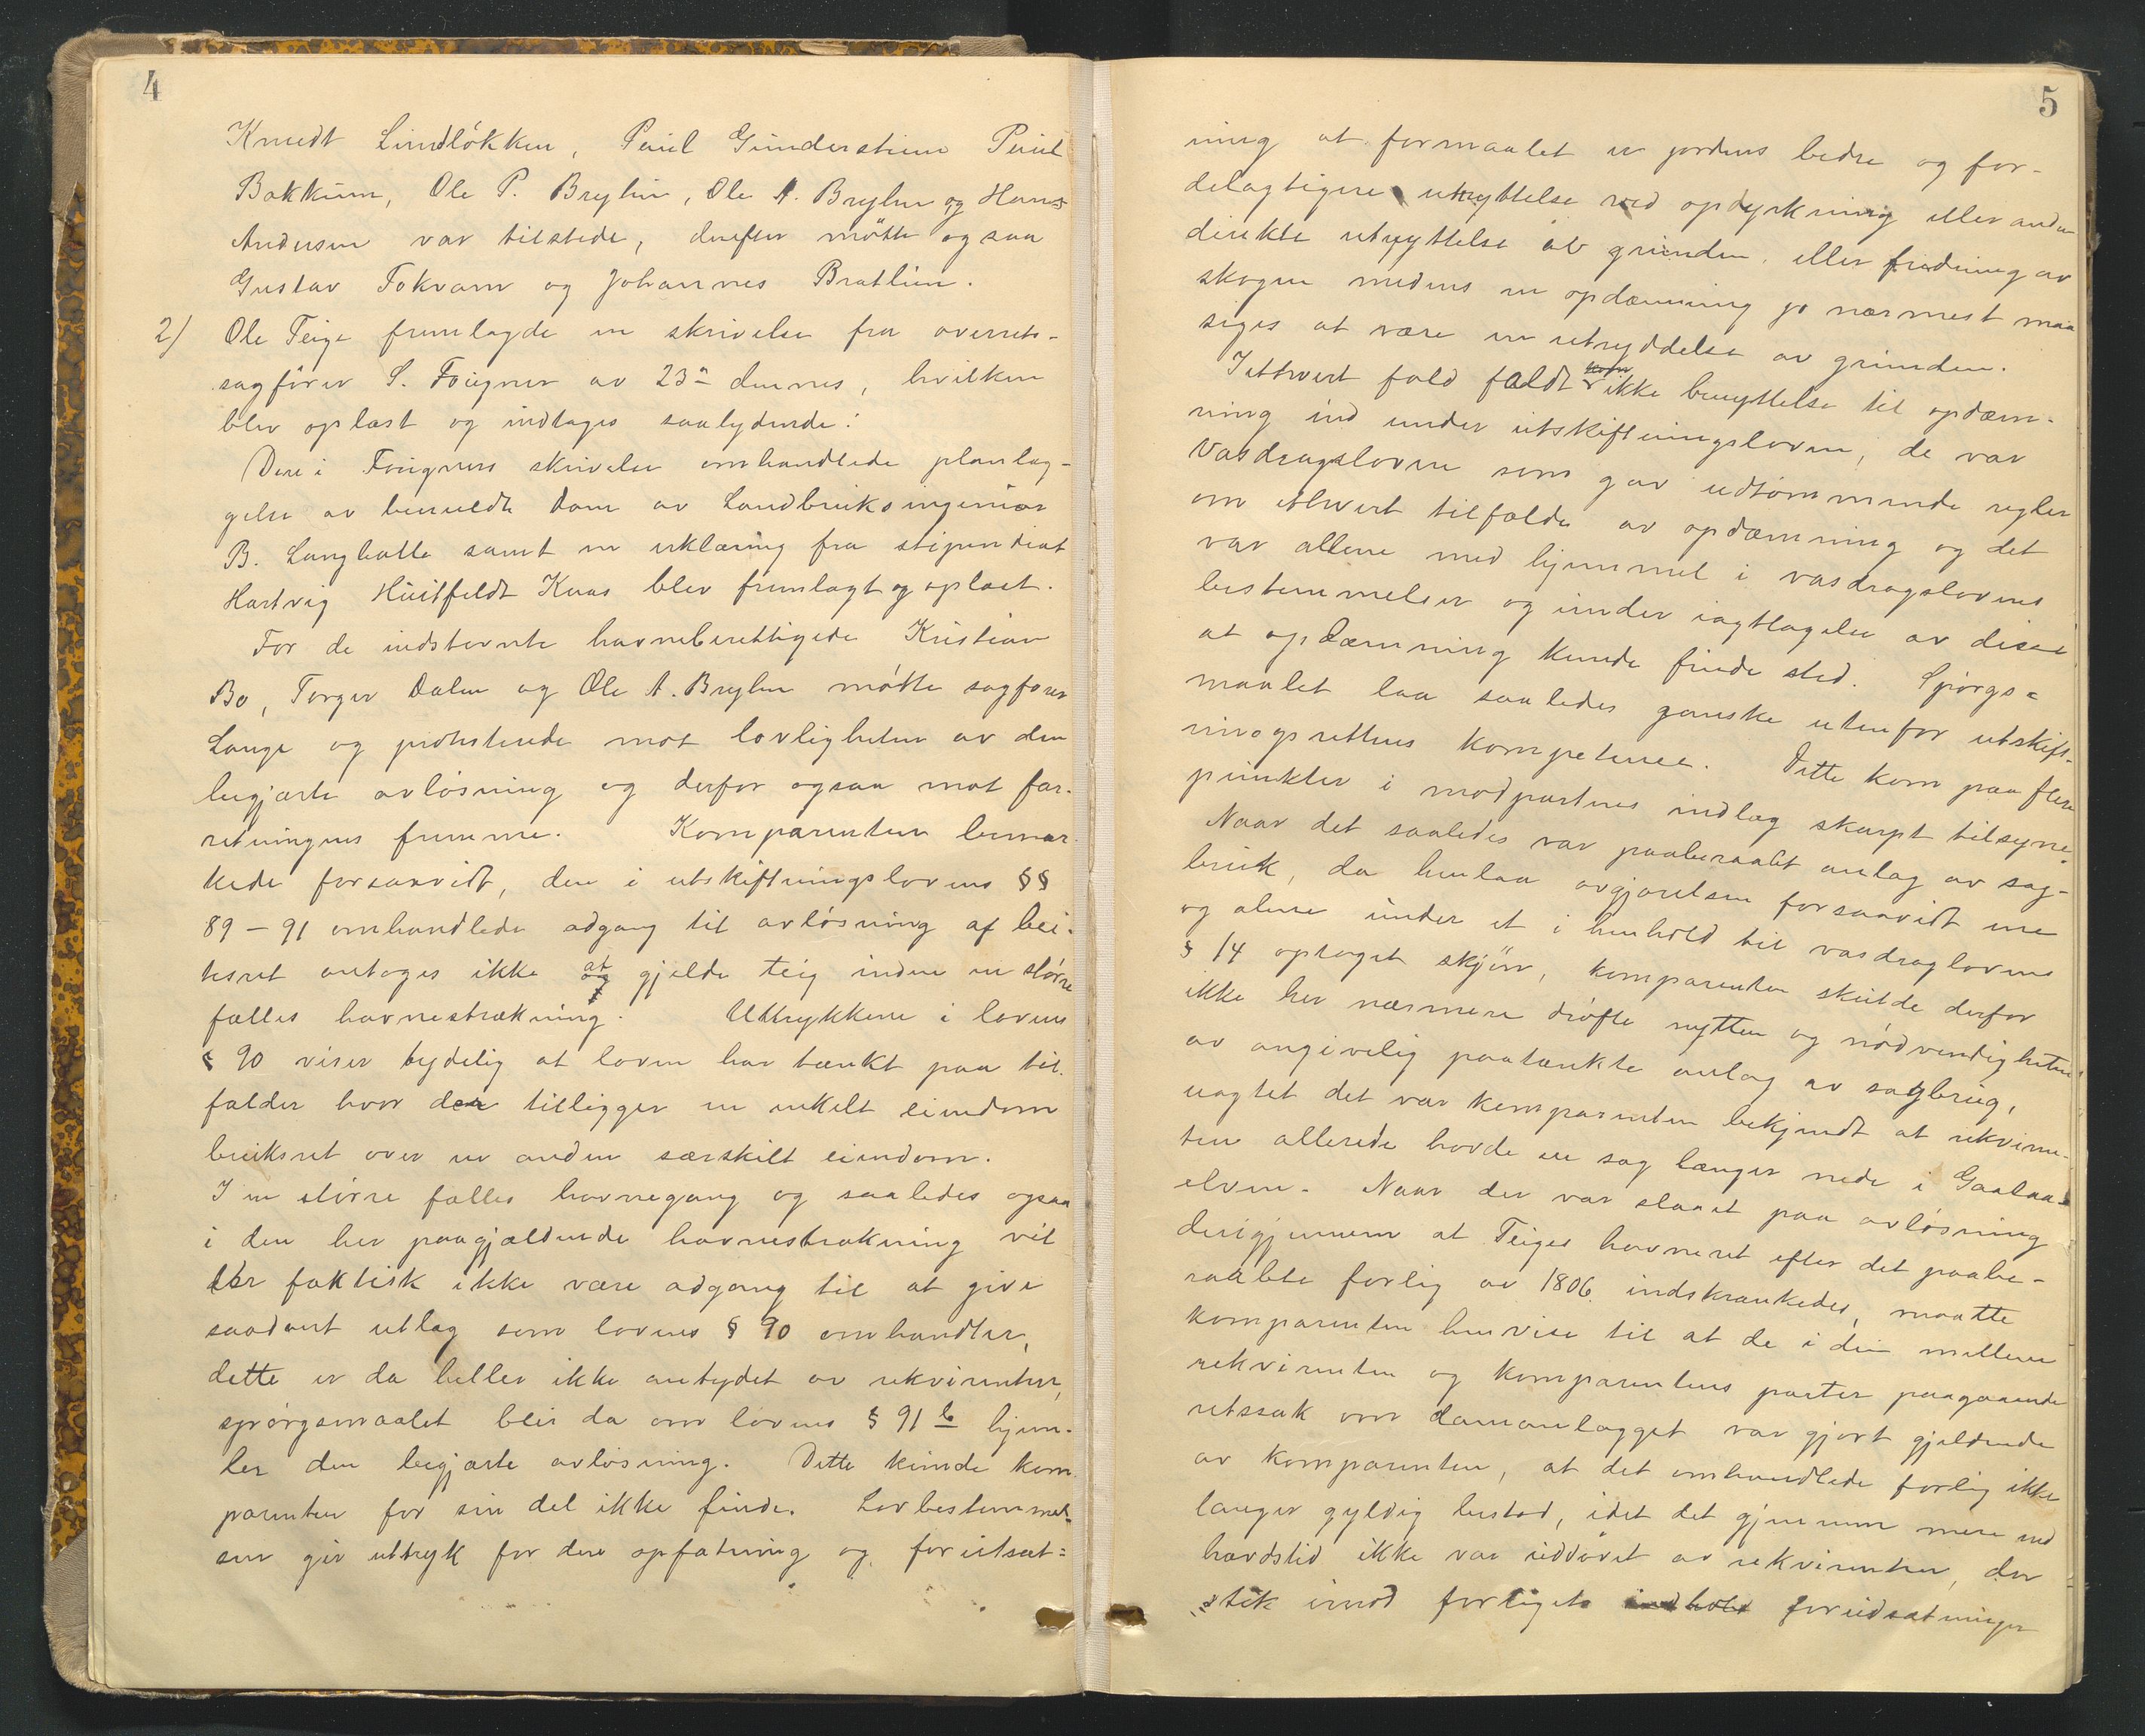 4
Knudt Lindløkken, Paul Gunderstuen Paul
Bakkum, Ole P. Brylin, Ole A. Brylin og Hans
Andersen var tilstede, derefter møtte ogsaa
Gustav Tokvam og Johannes Bratlien.
2) Ole Teige fremlagde en skrivelse fra overrets-
sagfører S. Fougner av 23de dennes, hvilken
blev oplæst og indtages saalydende:
Den i Fougners skrivelse omhandlede planlæg-
gelse av benevldte dam av Landbruksingeniør
B. Langballe samt en erklæring fra stipendiat
Hartvig Huitfeldt Kaas blev fremlagt og oplæst.
For de indstevnte havneberettigede Kristian
Bø, Torger Dalen og Ole A. Brylin møtte sagfører
Lange og protesterede mot lovligheten av den
begjærte avløsning og derfor ogsaa mot for-
retningens fremme. Komparenten bemær-
kede forsaavidt, den i utskiftningslovens §§
89 – 91 omhandlede adgang til avløsning af bei-
tesret antoges ikke at gjelde teig inden en større
fælles havnestrækning. Uttrykkene i lovens
§ 90 viser tydelig at loven har tænkt paa til-
fælder hvor der tilligger en enkelt eiendom
bruksret over en anden særskilt eiendom.
I en større fælles havnegang og saaledes ogsaa
i den her paagjældende havnestrækning vil
der faktisk ikke være adgang til at give
saadant utlæg som lovens § 90 omhandler,
dette er da heller ikke antydet av rekvirenten,
spørgsmaalet blir da om lovens § 91 b hjem-
ler den begjærte avløsning. Dette kunde kom-
parenten for sin del ikke finde. Lovbestemmel-
sen gir uttryk for den opfatning og forutsæt-
5
ning at formaalet er jordens bedre og for-
delagtigere utnyttelse ved opdyrkning eller anden
direkte utnyttelse av grunden eller fredning av
skogen medens en opdæmning jo nærmest maa
siges at være en utryddelse av grunden.
Iethvert fald faldt ikke benyttelse til opdæm-
ning ind under utskiftningsloven, de var
Vasdragsloven som gav udtømmende regler
om ethvert tilfælde av opdæmning og det
var allene med hjemmel i vasdragslovens
bestemmelser og under iagttagelse av disse
at opdæmning kunde finde sted. Spørgs-
maalet laa saaledes ganske utenfor utskift-
ningsrettens kompetence. Dette kom paa flere
punkter i modpartens indlæg skarpt tilsyne.
Naar det saaledes var paaberaabt anlæg av sag-
bruk, da henlaa avgjørelsen forsaavidt ene
og alene under et i henhold til vasdraglovens
§ 14 optaget skjøn, komparenten skulde derfor
ikke her nærmere drøfte nytten og nødvendigheten
av angivelig paatænkte anlæg av sagbrug,
uagtet det var komparenten bekjendt at rekviren-
ten allerede havde en sag længer nede i Gaalaa-
elven. Naar der var slaaet paa avløsning
derigjennem at Teiges havneret efter det paabe-
raabte forlig av 1806 indskrænkedes, maatte
komparenten henvise til at de i den mellem
rekvirenten og komparentens parter paagaaende
retssak om damanlægget var gjort gjeldende
av komparenten, at det omhandlede forlig ikke
længer gyldig bestod, idet det gjennem mere end
hævdstid ikke var uddøvet av rekvirenten, der
stik imod forligets indhold forudsætninger